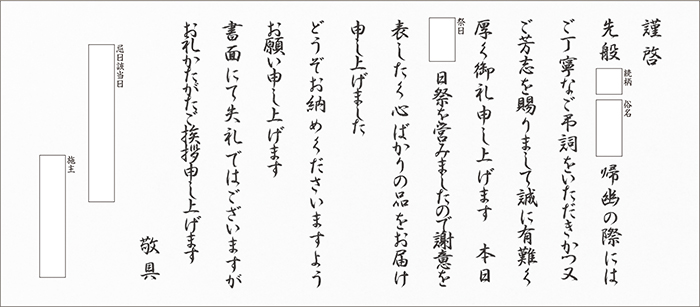 謹啓
先般 続柄 俗名 帰幽の際には
ご丁寧なご弔詞をいただきかつ又
ご芳志を賜りまして誠に有難く
厚く御礼申し上げます 本日
祭日 日祭を営みましたので謝意を
表したく心ばかりの品をお届け
申し上げました
どうぞお納めくださいますよう
お願い申し上げます
書面にて失礼ではございますが
お礼かたがたご挨拶申し上げます
敬具
忌日該当日
施主